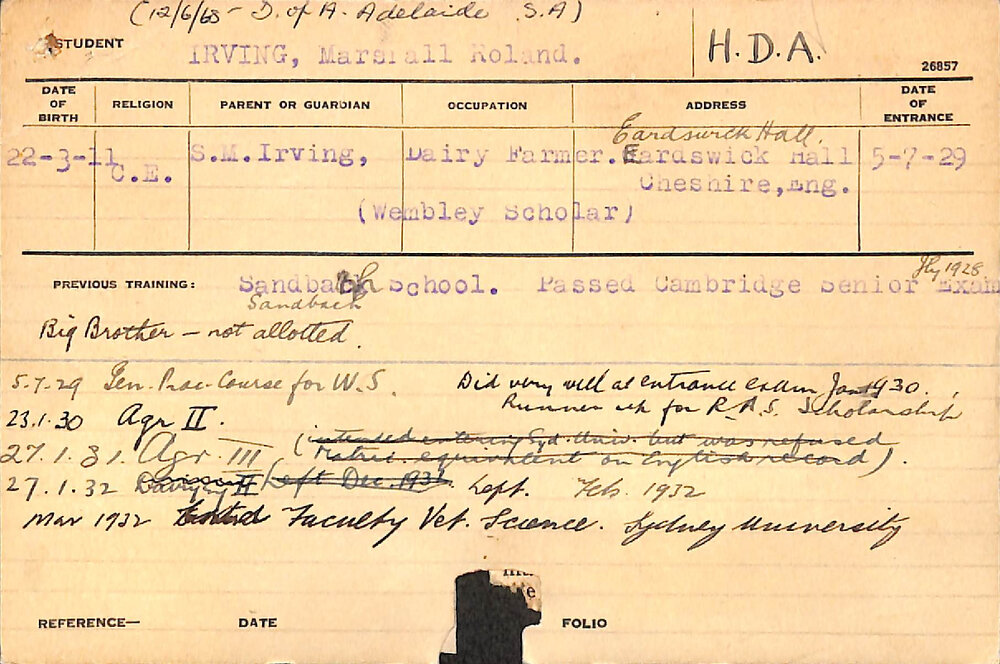 (12/6/63 - D. of A. Adelaide S.A)
STUDENT IRVING, Marshall Roland. H.D.A.
26857
DATE OF BIRTH RELIGION PARENT OR GUARDIAN OCCUPATION ADDRESS DATE OF ENTRANCE
Eardswick Hall.
22-3-11 C.E. S.M.Irving, Dairy Farmer. Eardswick Hall 5-7-29
Cheshire,Eng.
(Wembley Scholar)
PREVIOUS TRAINING: Sandbach School. Passed Cambridge Senior Exam
Sandbach
Jly 1928
Big Brother - not allotted.
5.7.29 Gen. Prac. Course for W.S. Did very well at entrance exam Jan 1930.
Runner up for R.A.S. Scholarship
23.1.30 Agr II.
27.1.31. Agr. III (intended entering Syd. Univ. but was refused
Matric. equivalent on English record).
27.1.32 Dairying II Left Dec. 1931. Left. Feb. 1932
Mar 1932 Faculty Vet. Science. Sydney University
REFERENCE— DATE FOLIO